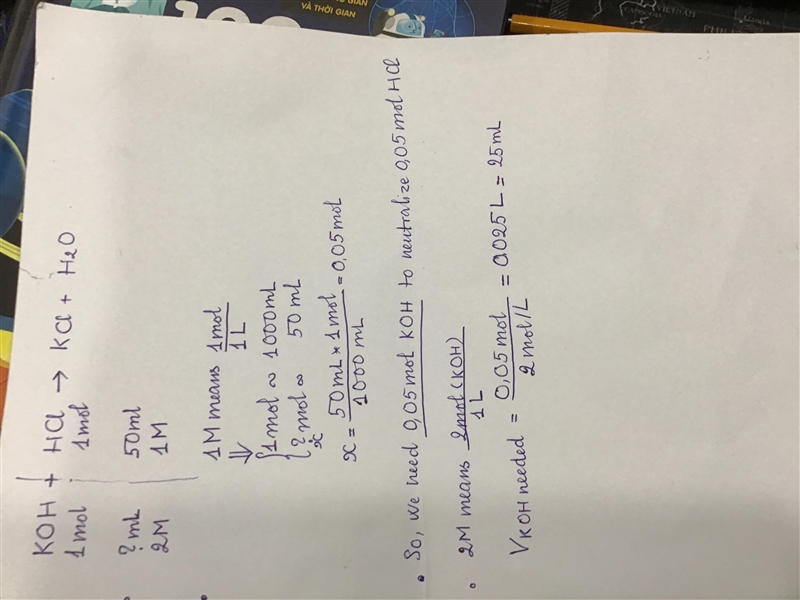 GIAN
VÀ THỜI GIAN
VIETNAM
PHILIP
KOH + HCl → KCl + H2O
1mol 1mol
? mL 50ml
2M 1M
1M means 1mol/1L
⇓
{1mol ~ 1000mL
{? mol ~ 50 mL
x
x = 50mL * 1mol/1000 mL = 0,05mol
• So, we need 0,05mol KOH to neutralize 0,05mol HCl
• 2M means 2mol(KOH)/1L
VKOH needed = 0,05mol/2 mol/L = 0,025L = 25mL